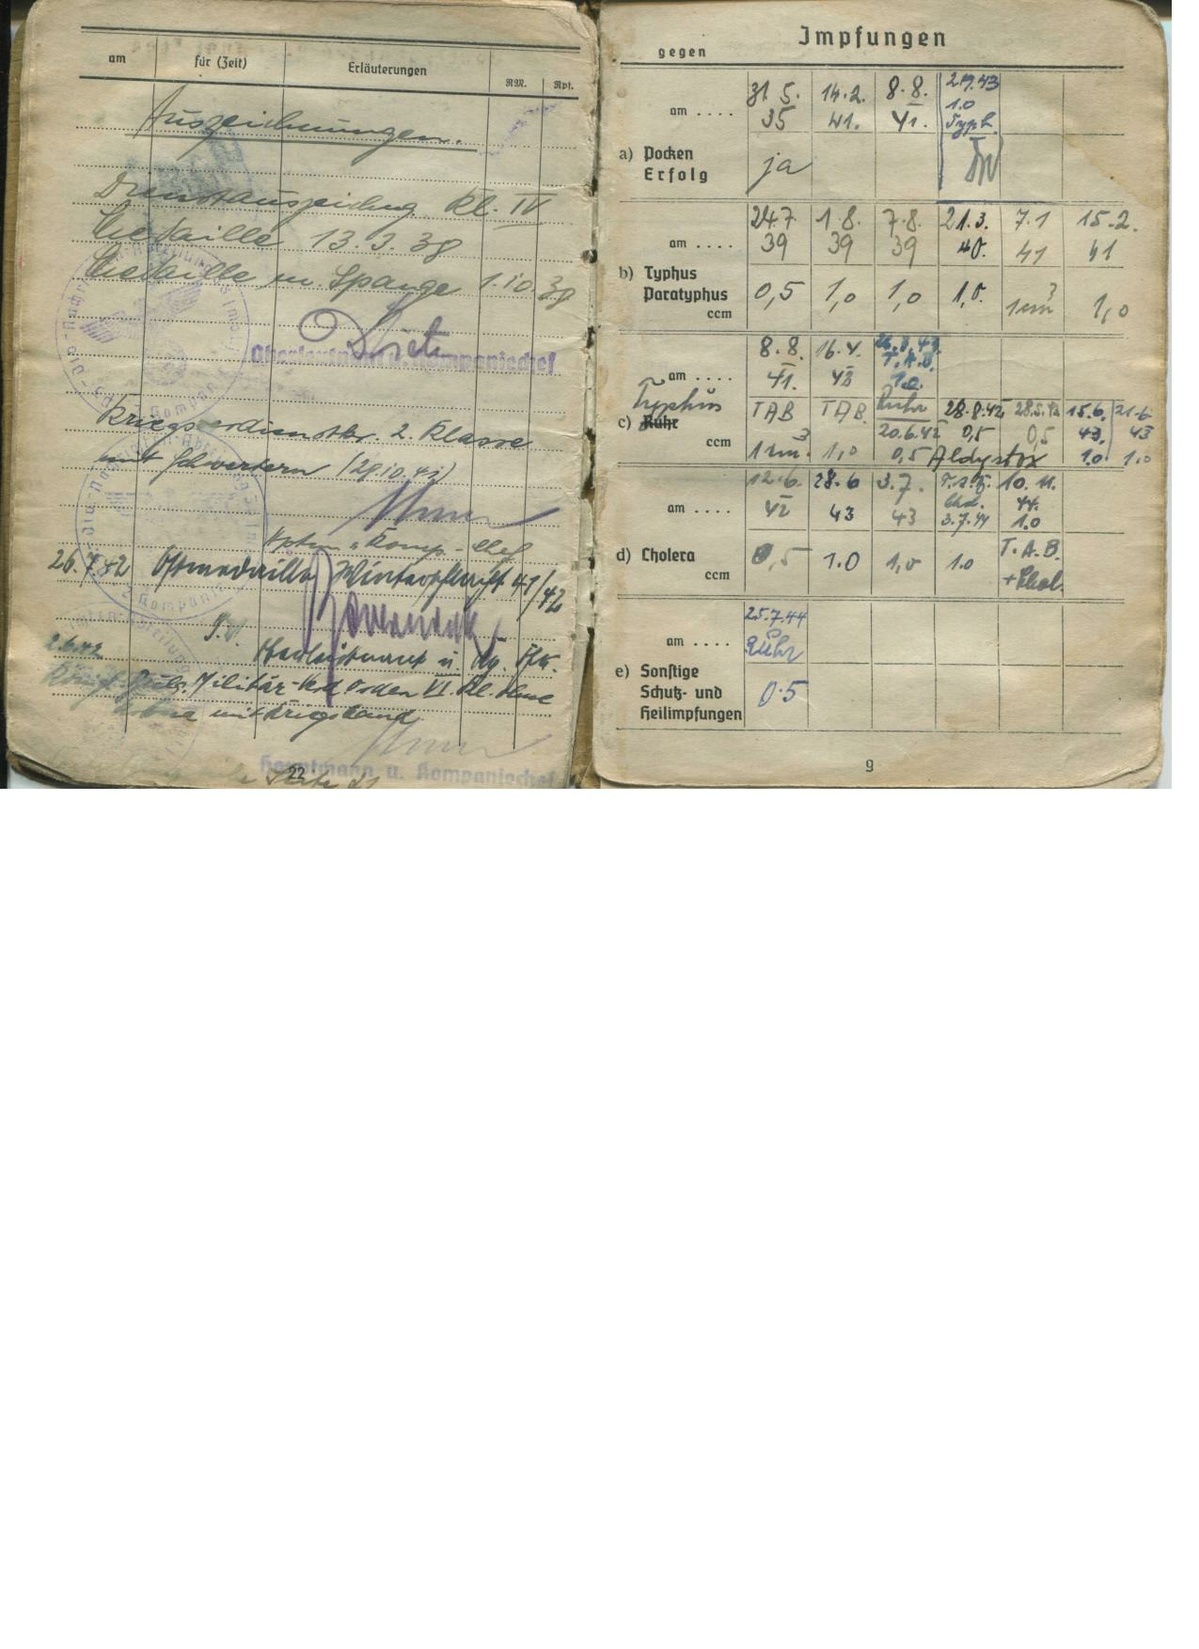 am für (Zeit) Erläuterungen RM. Rpf.
Auszeichnungen.
Dienstauszeichng Kl. IV
Medaille 13.3.38
Medaille m. Spange 1.10.38
Oberleutnant u. Kompaniechef
Kriegsverdienstkr. 2. Klasse
mit Schwertern (29.10.41)
Hptm u. Komp.-Chef
26.7.42 Ostmedaille Winterschlacht 41/42
2.6.42
Militär-Verd Orden VI. Kl. ohne
Krone mit Kriegsband
Hauptmann u. Kompaniechef
22
Impfungen
gegen
am .... 31.5. 35 14.2. 41. 8.8. 41. 43 1.0 Typh.
a) Pocken
Erfolg ja
am .... 24.7 39 1.8. 39 7.8. 39 21.3. 40. 7.1 41 15.2. 41
b) Typhus
Paratyphus
ccm 0,5 1,0 1,0 1,0. 1cm³ 1,0
am .... 8.8. 41. 16.4. T.A.B. 1.0.
Typhus
c) Ruhr TAB TAB. Ruhr 28.8.42 28.5.42 15.6. 43. 21.6 43
ccm 1cm³ 1,0 20.6.42 0,5 0,5 0,5 Aldystox 1.0 1.0
am .... 12.6. 42 28.6 43 3.7. 43 Chol. 3.7.44 10.11. 44. 1.0
d) Cholera
ccm 0,5 1.0 1,0 1.0 T.A.B. + Chol.
am .... 25.7.44 Ruhr
e) Sonstige
Schutz- und
Heilimpfungen 0.5
9